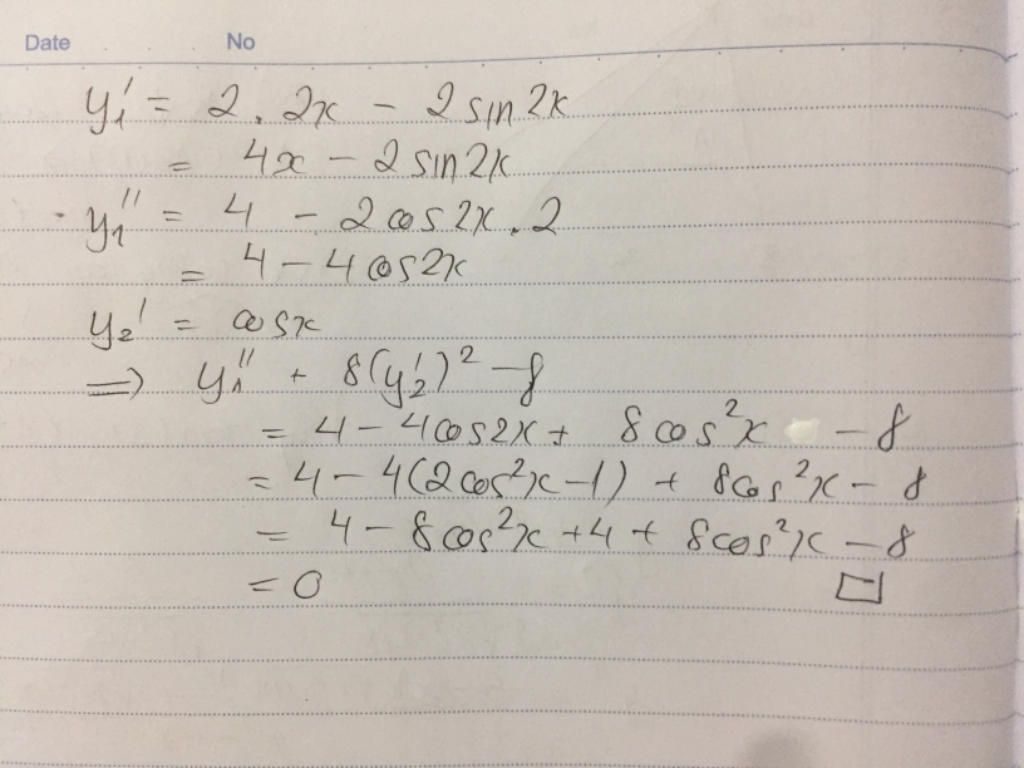 Date No
y₁' = 2 . 2x - 2 sin 2x
= 4x - 2 sin 2x
y₁'' = 4 - 2 cos 2x . 2
= 4 - 4 cos 2x
y₂' = cos x
⇒ y₁'' + 8(y₂')² - 8
= 4 - 4 cos 2x + 8 cos² x - 8
= 4 - 4(2 cos² x - 1) + 8 cos² x - 8
= 4 - 8 cos² x + 4 + 8 cos² x - 8
= 0 □